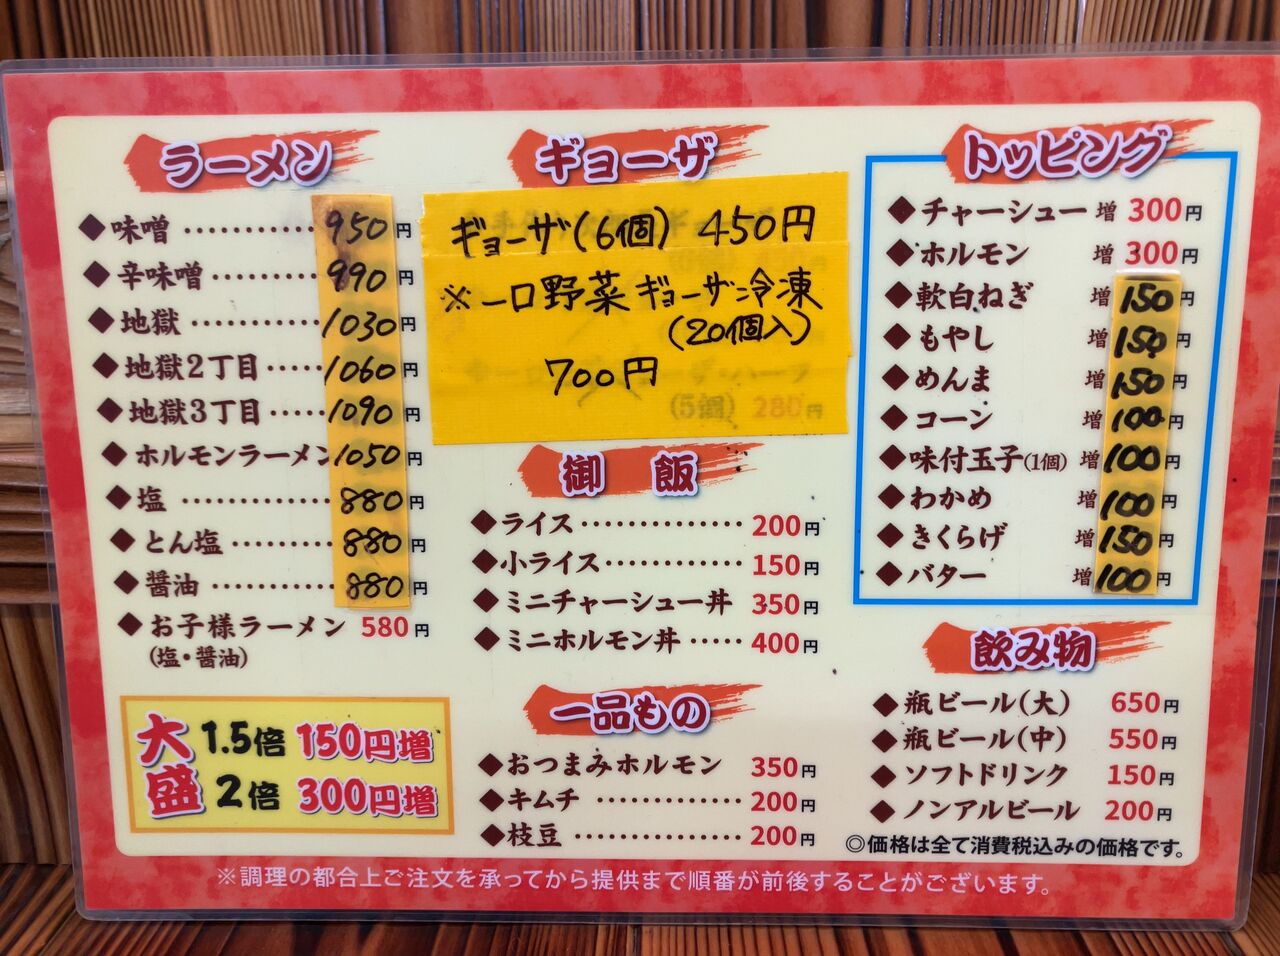 ラーメン
◆味噌 ………… 950円
◆辛味噌 ………… 990円
◆地獄 ………… 1030円
◆地獄2丁目 …… 1060円
◆地獄3丁目 …… 1090円
◆ホルモンラーメン 1050円
◆塩 ………… 880円
◆とん塩 ………… 880円
◆醤油 ………… 880円
◆お子様ラーメン 580円
(塩・醤油)
大盛
1.5倍 150円増
2倍 300円増
ギョーザ
ギョーザ(6個) 450円
※一口野菜ギョーザ冷凍
(20個入)
700円
(5個) 280円
御飯
◆ライス ………… 200円
◆小ライス ………… 150円
◆ミニチャーシュー丼 350円
◆ミニホルモン丼 …… 400円
一品もの
◆おつまみホルモン 350円
◆キムチ ………… 200円
◆枝豆 ………… 200円
トッピング
◆チャーシュー 増 300円
◆ホルモン 増 300円
◆軟白ねぎ 増 150円
◆もやし 増 150円
◆めんま 増 150円
◆コーン 増 100円
◆味付玉子(1個) 増 100円
◆わかめ 増 100円
◆きくらげ 増 150円
◆バター 増 100円
飲み物
◆瓶ビール(大) 650円
◆瓶ビール(中) 550円
◆ソフトドリンク 150円
◆ノンアルビール 200円
◎価格は全て消費税込みの価格です。
※調理の都合上ご注文を承ってから提供まで順番が前後することがございます。